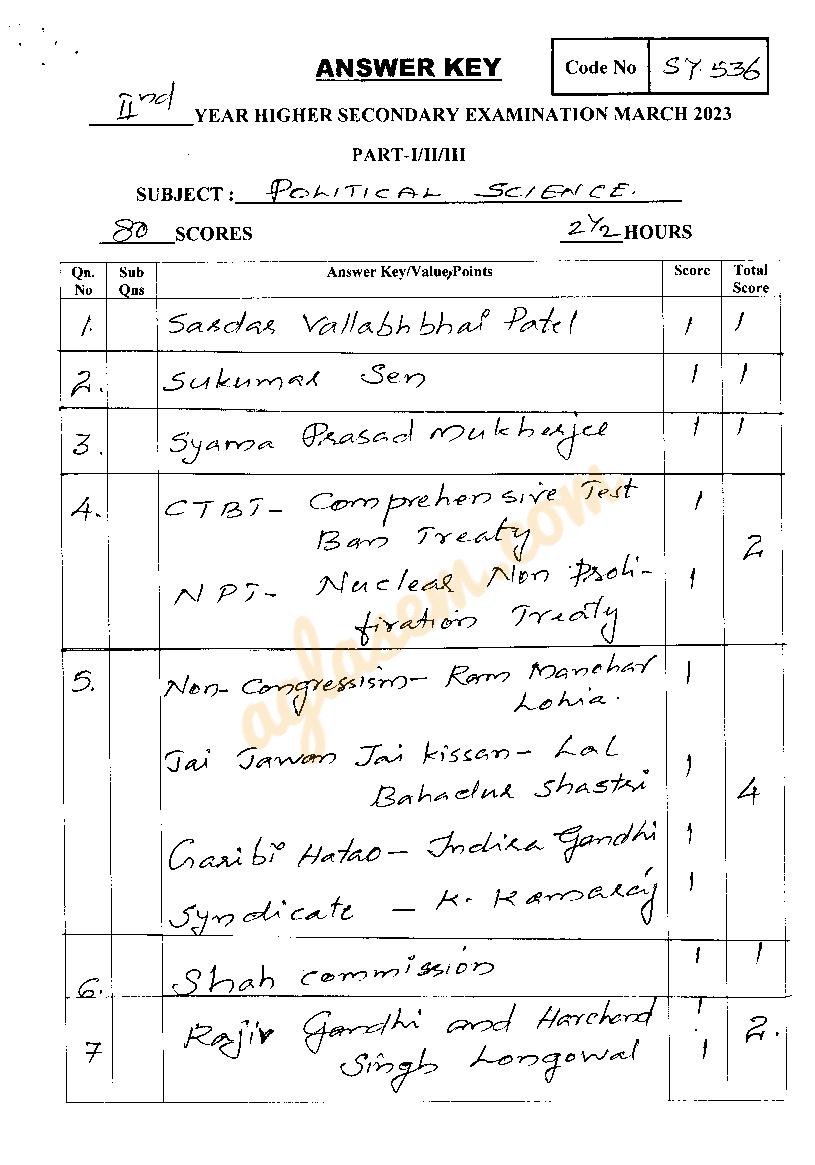 ANSWER KEY
Code No SY 536
IInd YEAR HIGHER SECONDARY EXAMINATION MARCH 2023
PART-I/II/III
SUBJECT : POLITICAL SCIENCE.
80 SCORES 2½ HOURS
Qn. No Sub Qns Answer Key/Value Points Score Total Score
1. Sardar Vallabhbhai Patel 1 1
2. Sukumar Sen 1 1
3. Syama Prasad Mukherjee 1 1
4. CTBT- Comprehensive Test 1
Ban Treaty 2
NPT- Nuclear Non Proli- 1
firation Treaty
5. Non-Congressism- Ram Manohar 1
Lohia.
Jai Jawan Jai Kissan- Lal 1
Bahadur Shastri 4
Garibi Hatao- Indira Gandhi 1
Syndicate - K. Kamaraj 1
6. Shah commission 1 1
7 Rajiv Gandhi and Harchand 1 2.
Singh Longowal 1
aglasem.com